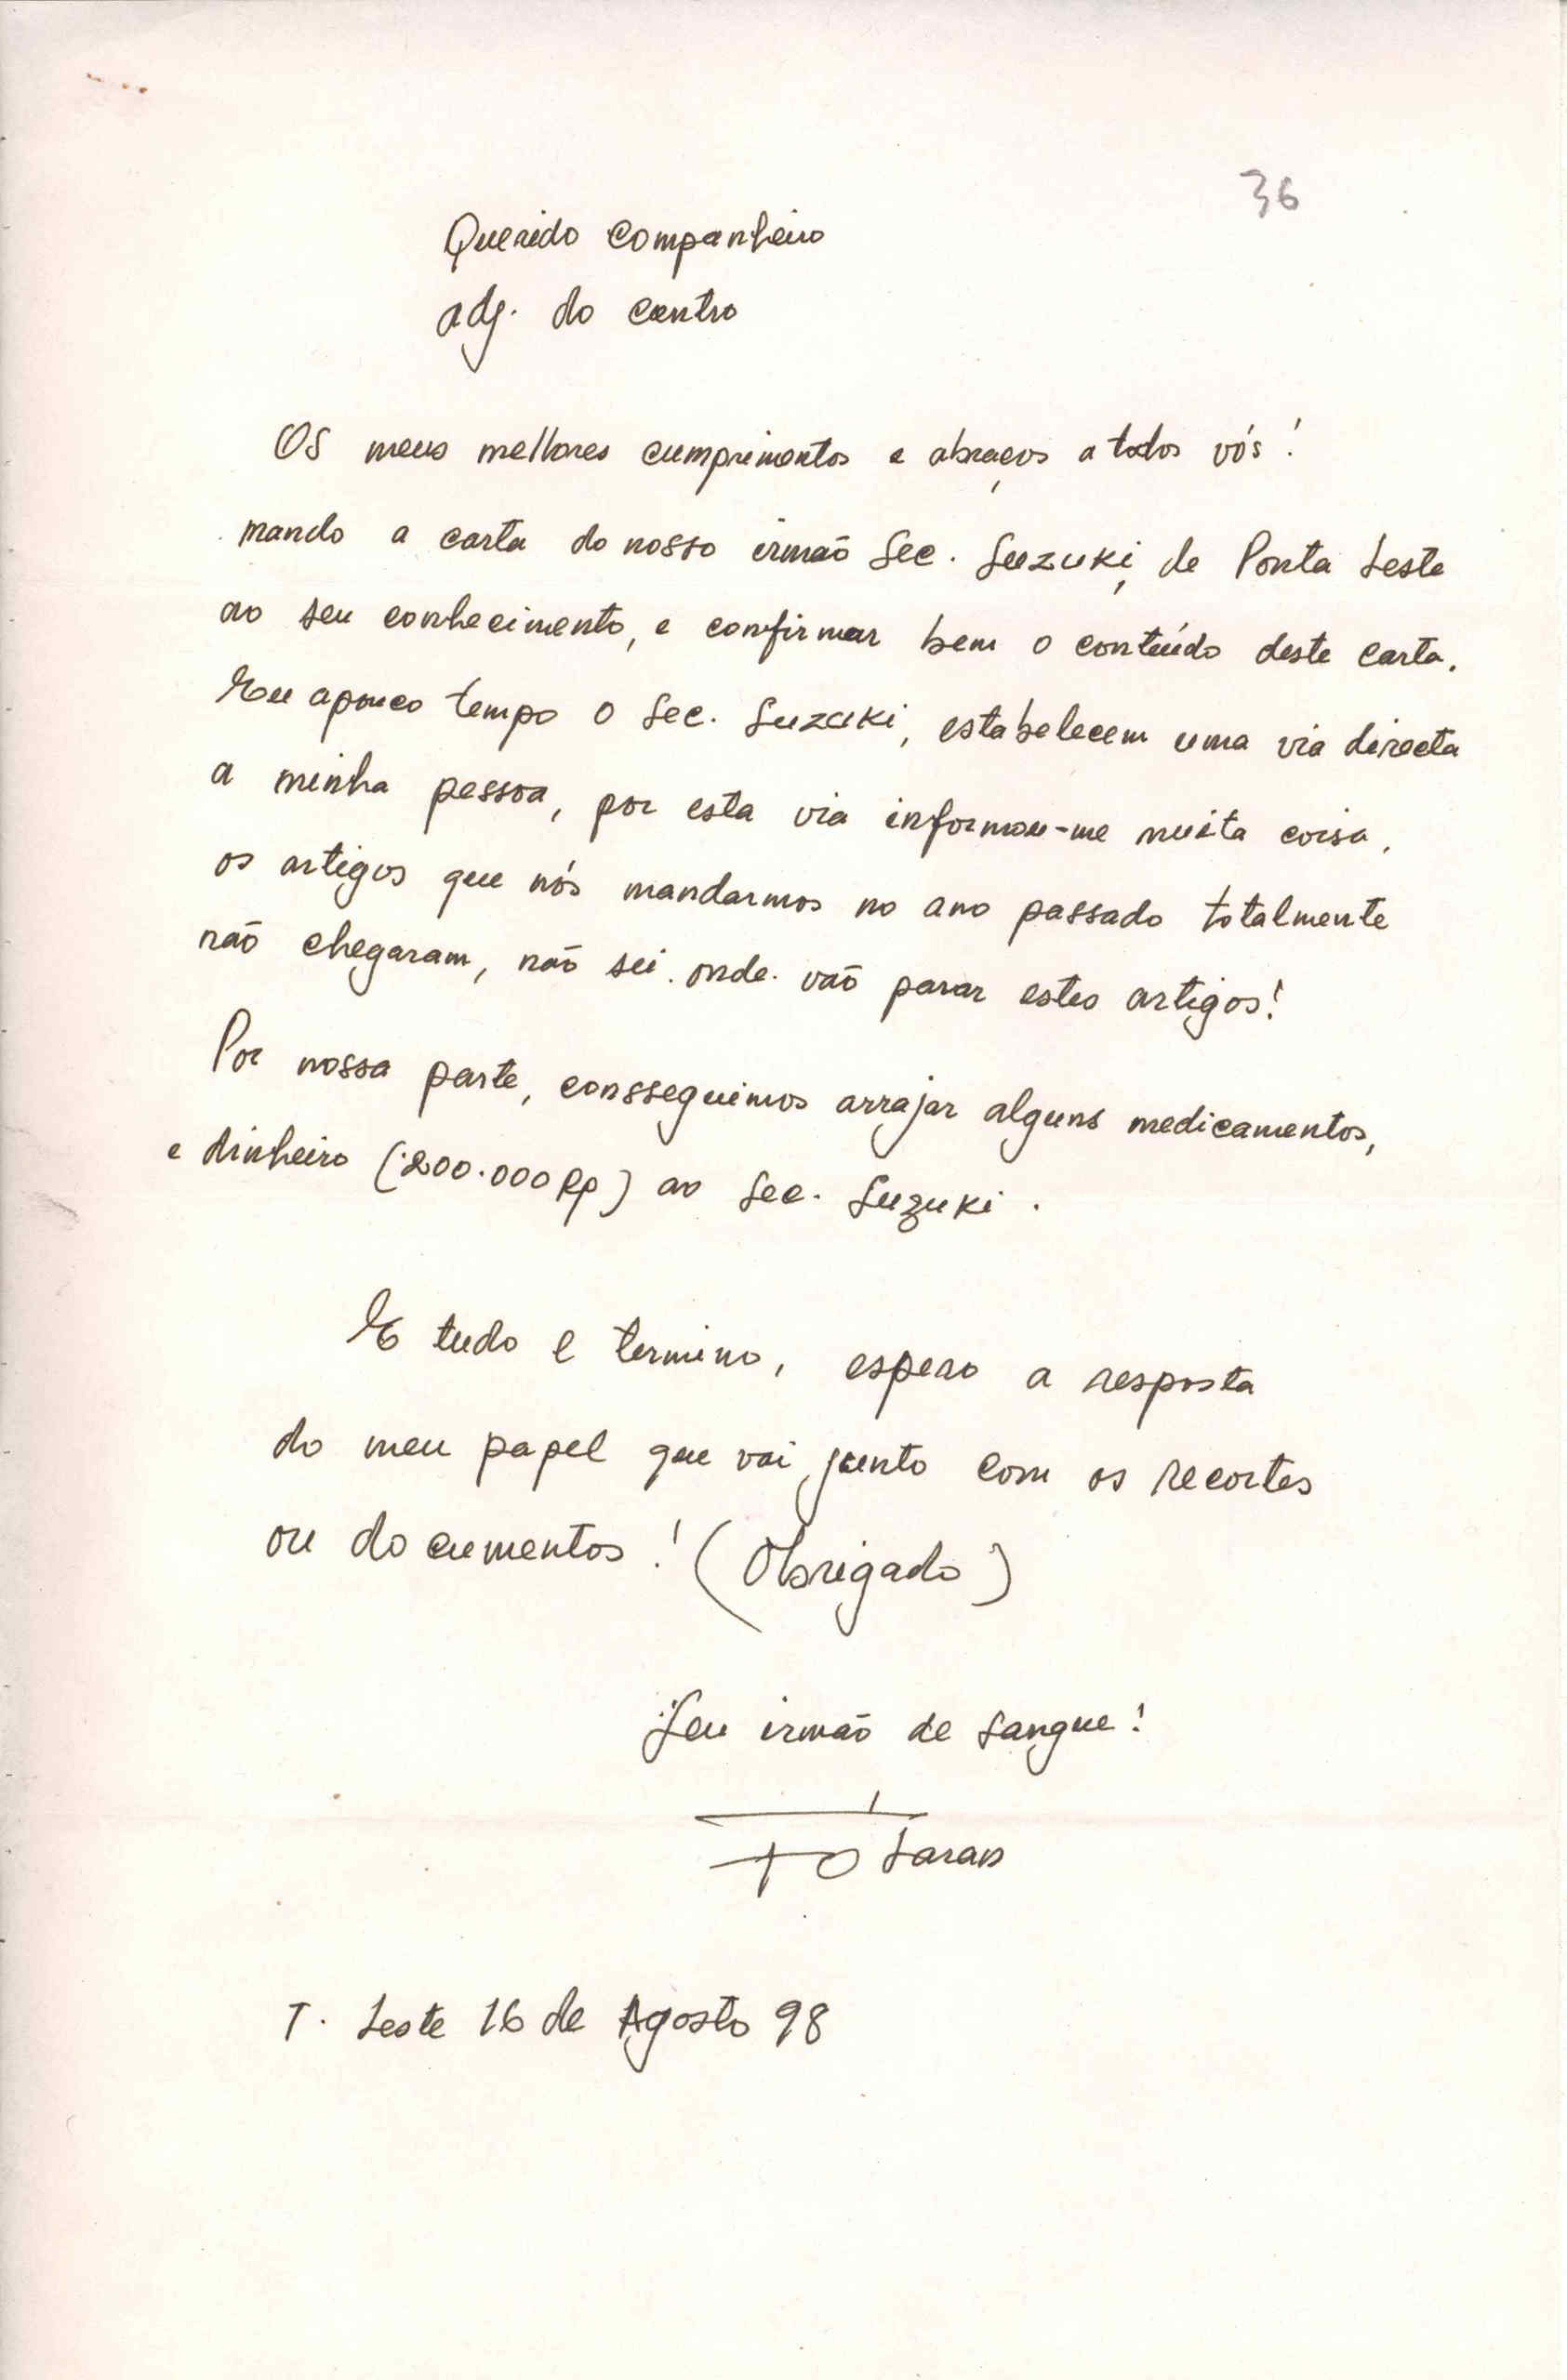 36
Querido companheiro
adj. do centro
Os meus melhores cumprimentos e abraços a todos vós!
mando a carta do nosso irmão Sec. Suzuki, de Ponta Leste
ao seu conhecimento, e confirmar bem o conteúdo deste carta.
Eu apouco tempo o Sec. Suzuki, estabelecem uma via directa
a minha pessoa, por esta via informou-me muita coisa,
os artigos que nós mandarmos no ano passado totalmente
não chegaram, não sei onde vão parar estes artigos!
Por nossa parte, consseguimos arrajar alguns medicamentos,
e dinheiro (200.000 Rp) ao Sec. Suzuki.
E tudo e termino, espero a resposta
do meu papel que vai junto com os recortes
ou documentos! (Obrigado)
Seu irmão de sangue!
T. Leste 16 de Agosto 98